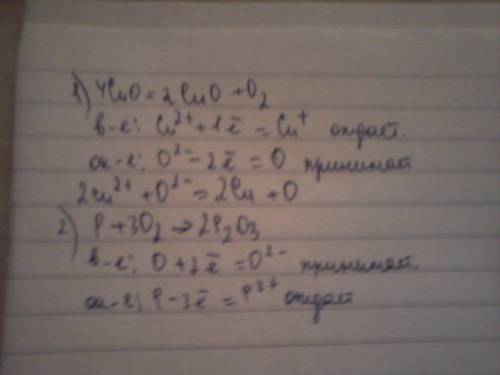 1) 4CuO = 2CuO + O₂
в-е: Cu²⁺ + 1ē = Cu⁺ отдает.
ок-е: O²⁻ - 2ē = O принимает
2Cu²⁺ + O²⁻ = 2Cu + O
2) P + 3O₂ → 2P₂O₃
в-е: O + 2ē = O²⁻ принимает.
ок-е) P - 3ē = P³⁺ отдает